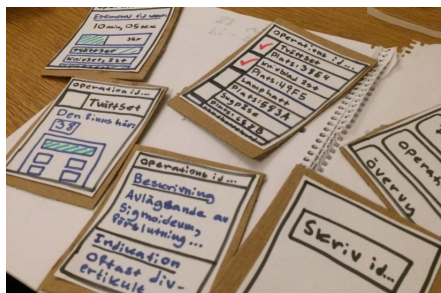 Estimerad tid
10 min, 05 sek
Tvättset
Knivset, 2st
Operations id...
Tvättset
Plats: 3354
Knivblad 2st
Plats: 49F5
Lamphatt
Plats: 553A
Sugpåse
Plats:
Operation id...
Tvättset
Den finns här:
38
Operations id...
Beskrivning
Avlägsande av
Sigmoideum,
förslutning...
Indikation
Oftast div-
ertikulit
Skriv id...